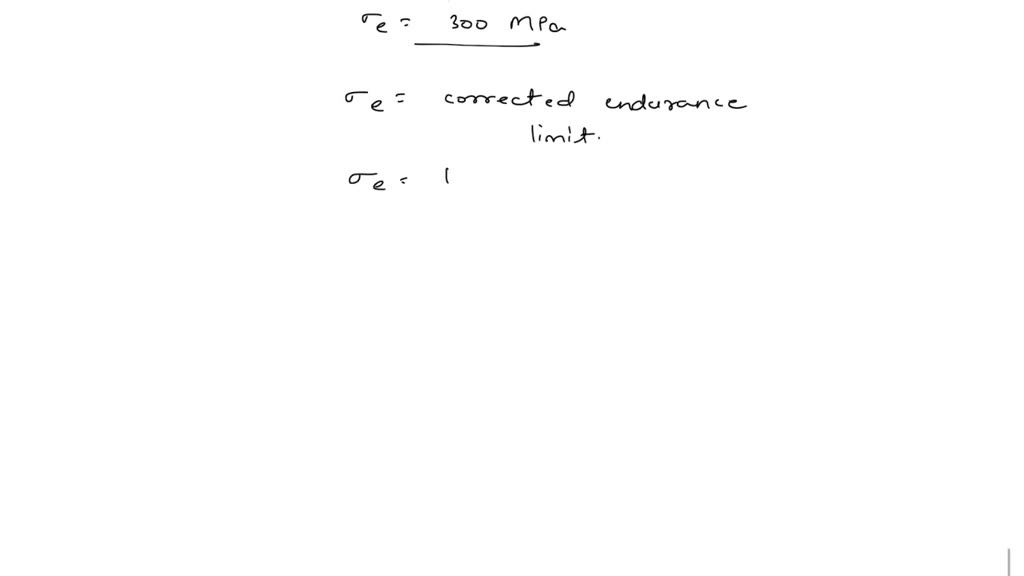 σe = 300 MPa
σe = corrected endurance
limit.
σe = 1